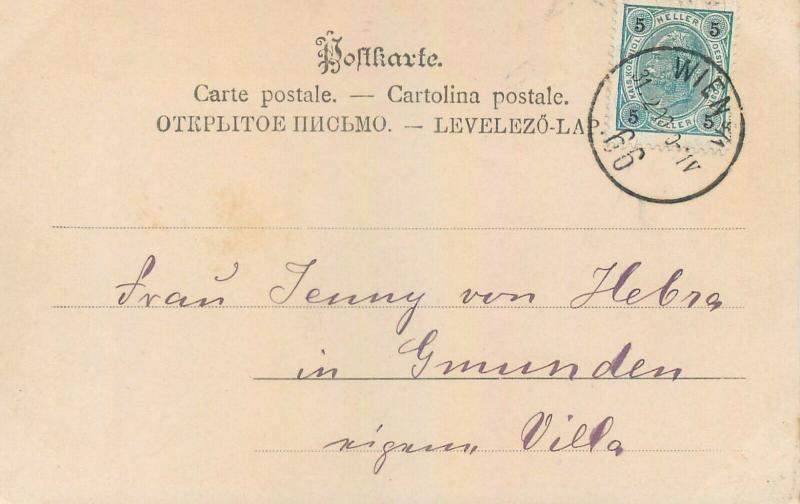 Postkarte.
Carte postale. — Cartolina postale.
ОТКРЫТОЕ ПИСЬМО. — LEVELEZŐ-LAP.
5 HELLER 5
5 HELLER 5
WIEN
66
Frau Jenny von Hebra
in Gmunden
eigene Villa